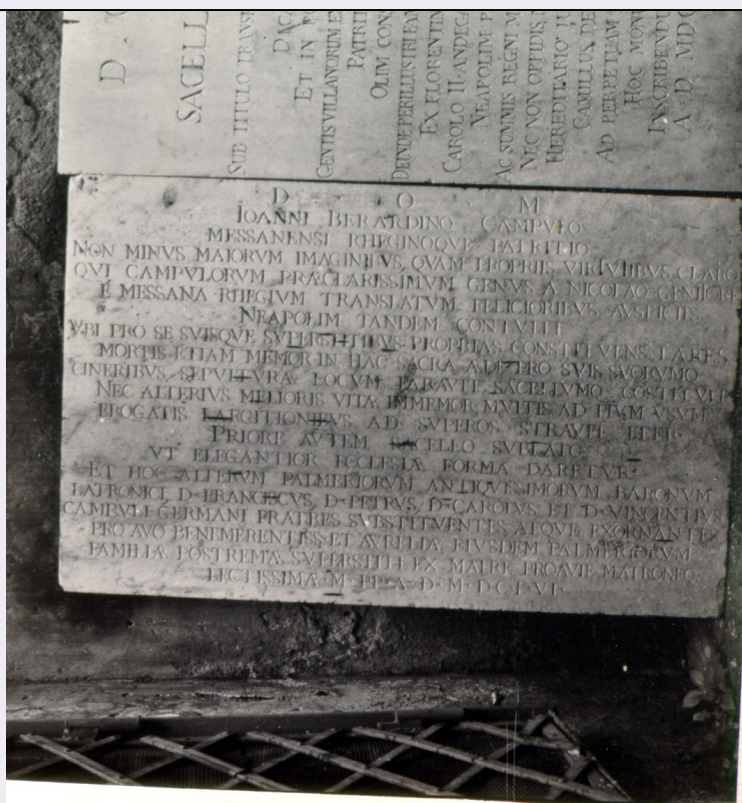 D · O
SACELL
SUB TITULO TRANSF
DICA
ET IN PO
GENTIS VILLANORUM EX
PATRITI
OLIM CONS
DEINDE PERILLUSTRI FAM
EX FLORENTIN
CAROLO II · ANDEGA
NEAPOLIM P
AC SUMMIS REGNI M
NEC NON OPPIDIS,
HEREDITARIO JU
CAMILLUS DE
AD PERPETUAM
HOC MONU
INSCRIBENDU
A · D · MDC
D O M
IOANNI BERARDINO CAMPVLO
MESSANENSI RHEGINOQVE PATRITIO
NON MINVS MAIORVM IMAGINIBVS, QVAM PROPRIIS VIRTVTIBVS, CLARO
QVI CAMPVLORVM PRÆCLARISSIMVM GENVS A NICOLAO
E MESSANA RHEGIVM TRANSLATVM FELICIORIBVS AVSPICIIS
NEAPOLIM TANDEM CONTVLIT
VBI PRO SE SVISQVE SVPERSTITIBVS PROPRIAS CONSTITVENS LARES
MORTIS ETIAM MEMOR IN HAC SACRA ÆDE PRO SVIS, SVORVMQ
CINERIBVS, SEPVLTVRÆ LOCVM PARAVIT SACELLVMQ COSTITVIT
NEC ALTERIVS MELIORIS VITÆ IMMEMOR MVLTIS AD PIVM VSVM
EROGATIS LARGITIONIBVS AD SVPEROS STRAVIT ITER
PRIORE AVTEM SACELLO SVBLATO
VT ELEGANTIOR ECCLESIÆ FORMA DARETVR
ET HOC ALTERVM PALMERIORVM ANTIQVISSIMORVM BARONVM
LATRONICI, D · FRANCISCVS, D · PETRVS, D · CAROLVS, ET D · VINCENTIVS
CAMPVLI GERMANI FRATRES SVBSTITVENTES ATQVE EXORNANTES
PROAVO BENEMERENTISS · ET AVRELIÆ EIVSDEM PALMERIORVM
FAMILIÆ POSTREMÆ SVPERSTITI EX MATRE PROAVIÆ MATRONÆQ
LECTISSIMÆ M · PP · A · D · M · DCLVI ·